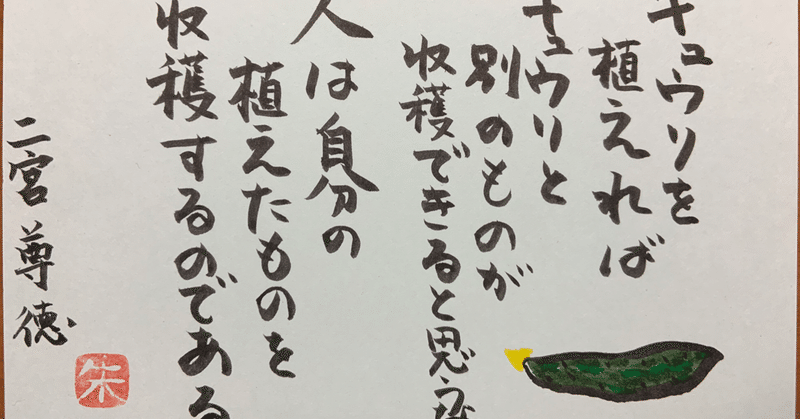 キュウリを
植えれば
キュウリと
別のものが
収穫できると思う
人は自分の
植えたものを
収穫するのである
二宮尊徳
朱